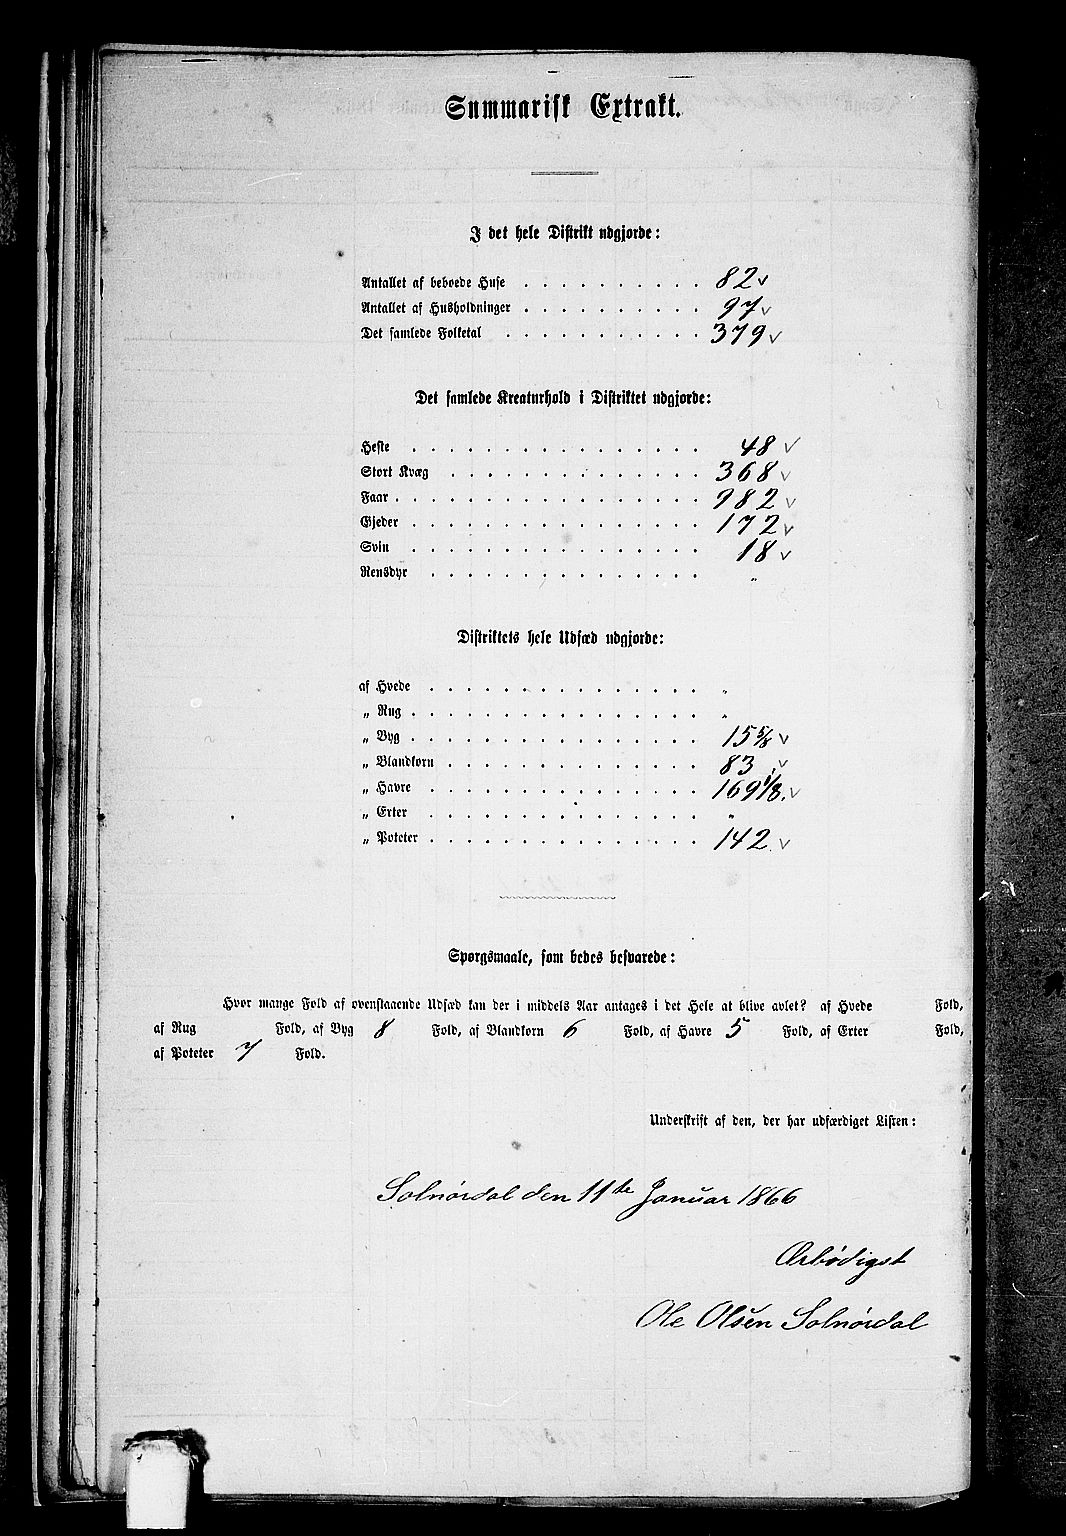 Summarisk Extrakt.
I det hele Distrikt udgjorde:
Antallet af beboede Huse . . . . . . . . . . 82 v
Antallet af Husholdninger . . . . . . . . . . 97 v
Det samlede Folketal . . . . . . . . . . . 379 v
Det samlede Kreaturhold i Distriktet udgjorde:
Heste . . . . . . . . . . . . . . . . 48 v
Stort Kvæg . . . . . . . . . . . . . . 368 v
Faar . . . . . . . . . . . . . . . . . 982 v
Gjeder . . . . . . . . . . . . . . . . 172 v
Svin . . . . . . . . . . . . . . . . 18 v
Rensdyr . . . . . . . . . . . . . . . "
Distriktets hele Udsæd udgjorde:
af Hvede . . . . . . . . . . . . . . . "
„ Rug . . . . . . . . . . . . . . . . "
„ Byg . . . . . . . . . . . . . . . . 15 5/8 v
„ Blandkorn . . . . . . . . . . . . . . 83 v
„ Havre . . . . . . . . . . . . . . . 169 1/8. v
„ Erter . . . . . . . . . . . . . . . "
„ Poteter . . . . . . . . . . . . . . . 142 v
Spørgsmaale, som bedes besvarede:
Hvor mange Fold af ovenstaaende Udsæd kan der i middels Aar antages i det Hele at blive avlet? af Hvede Fold,
af Rug Fold, af Byg 8 Fold, af Blandkorn 6 Fold, af Havre 5 Fold, af Erter Fold,
af Poteter 7 Fold.
Underskrift af den, der har udfærdiget Listen:
Solnørdal den 11te Januar 1866
Ærbødigst
Ole Olsen Solnørdal